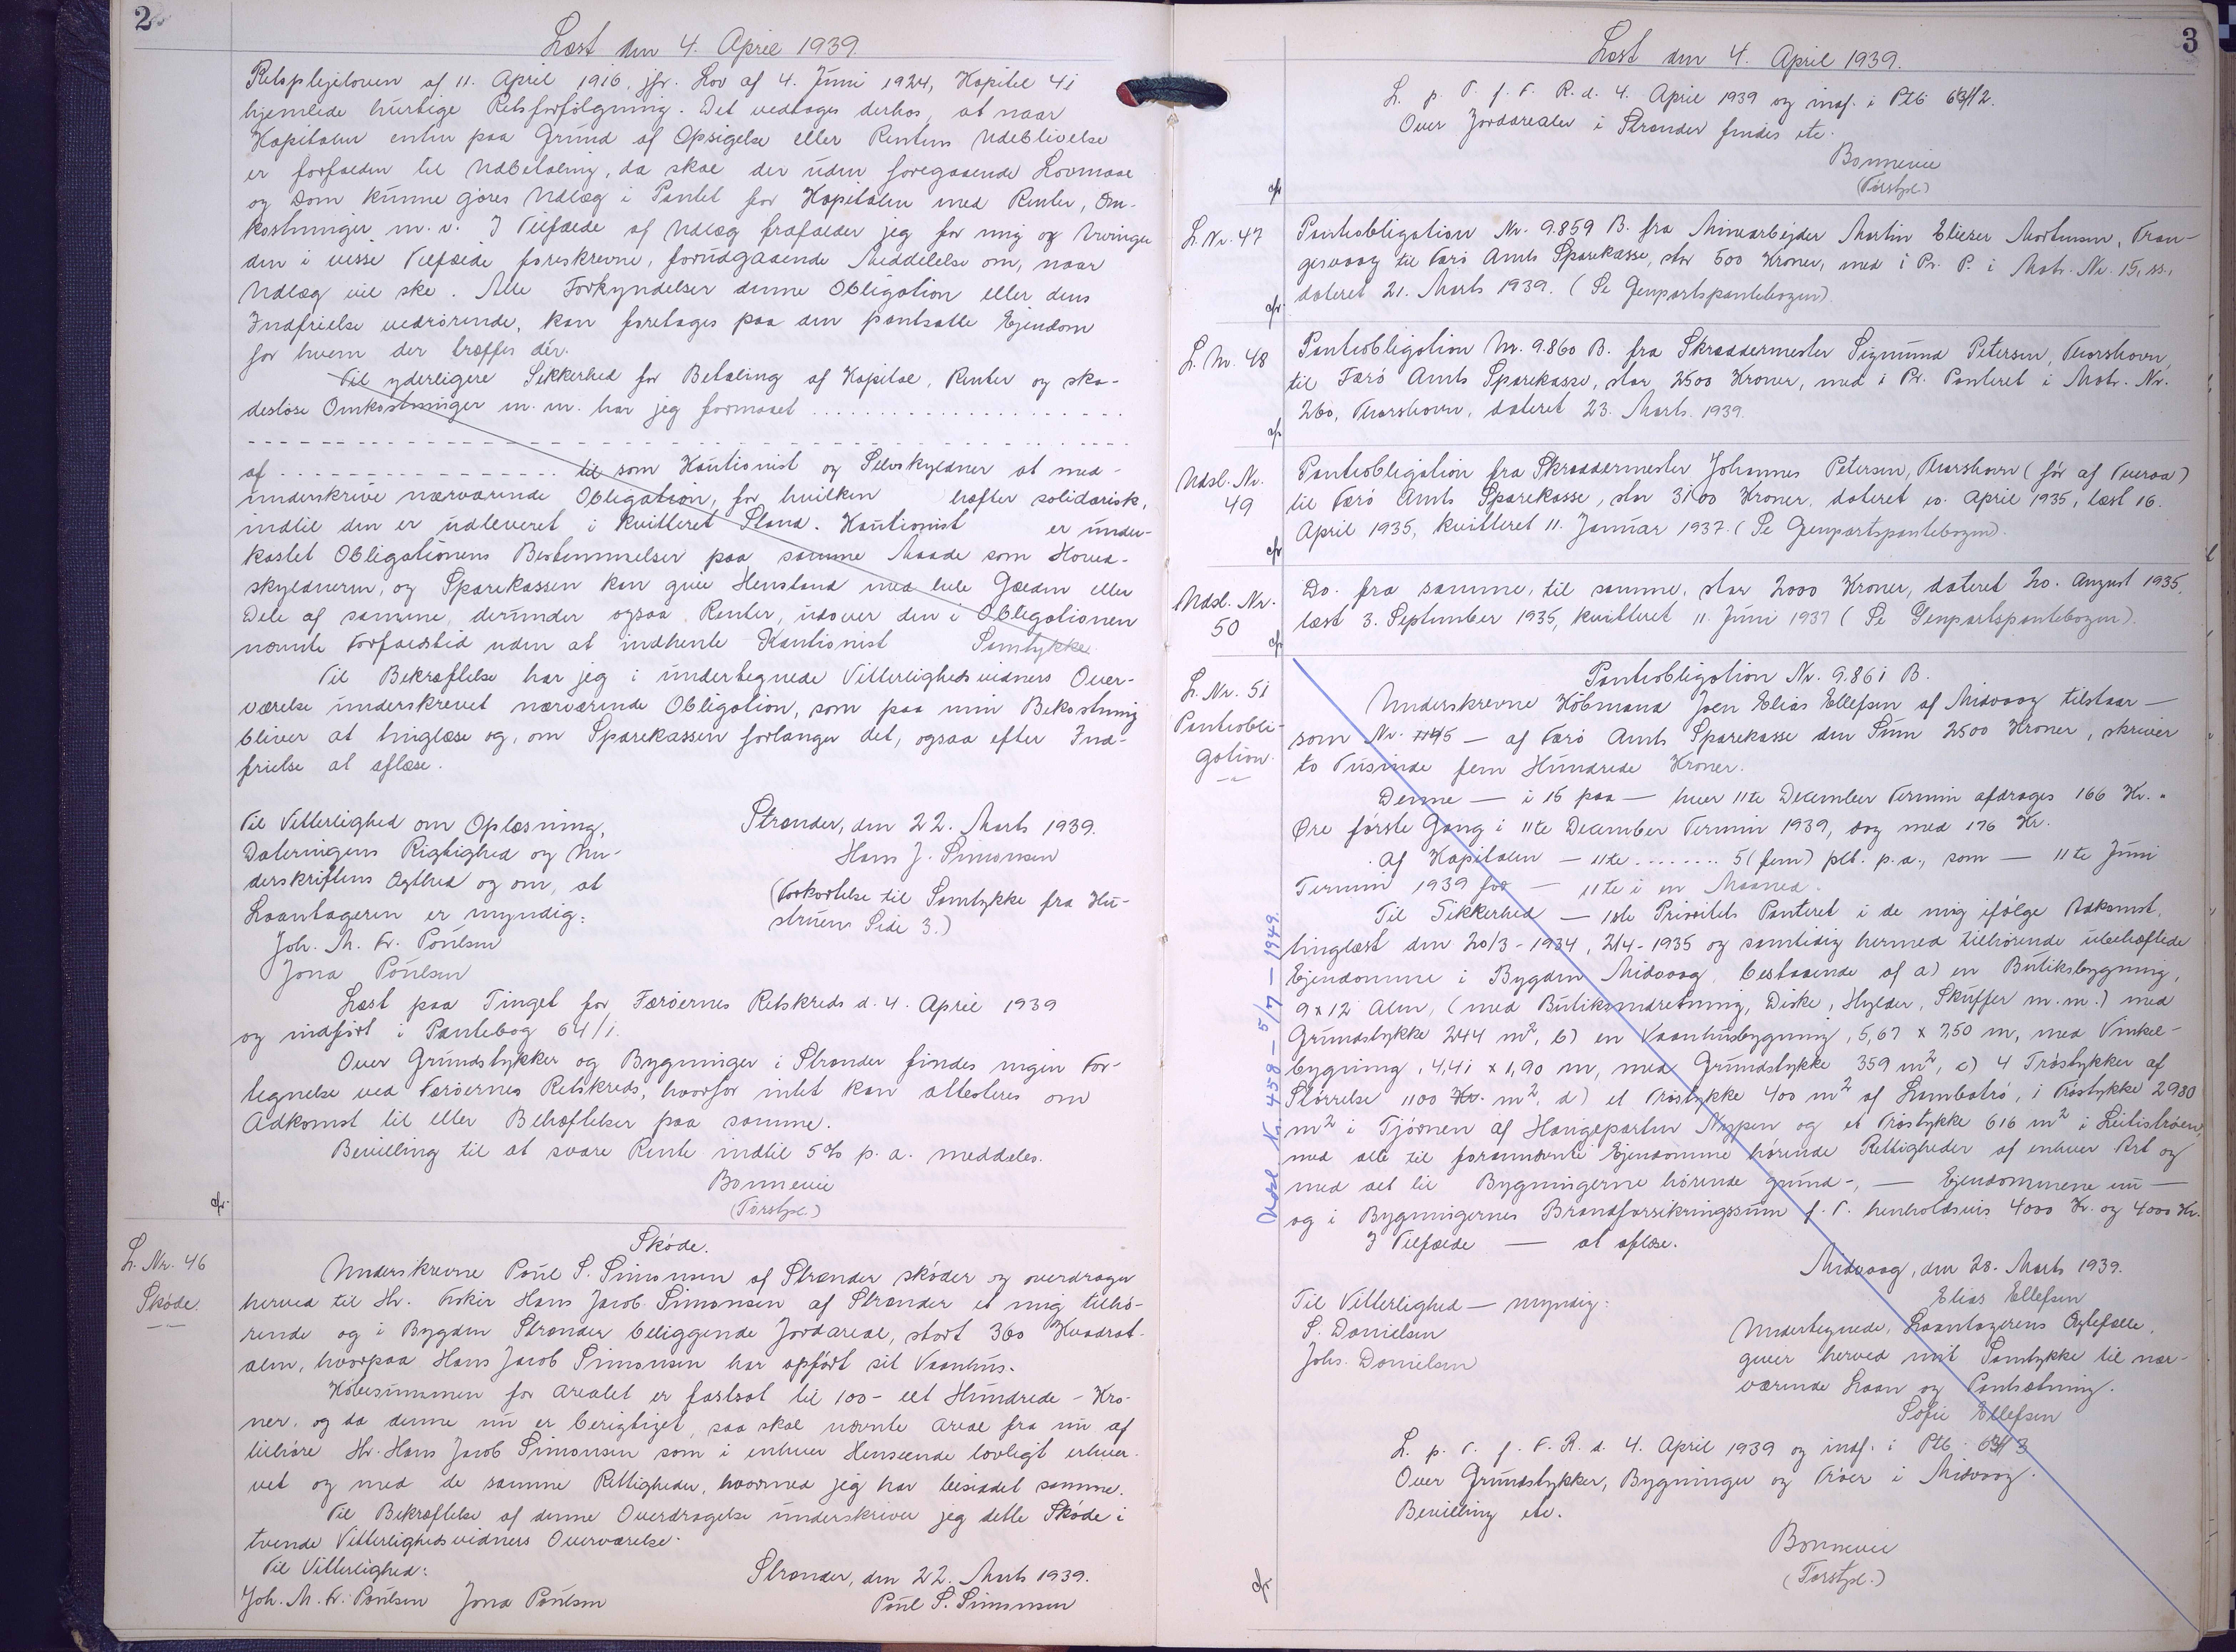 2
Læst den 4. April 1939.
Retsplejeloven af 11. April 1916, jfr. Lov af 4. Juni 1924, Kapitel 41
hjemlede hurtige Retsforfølgning. Det vedtages derhos, at naar
Kapitalen enten paa Grund af Opsigelse eller Rentens Udeblivelse
er forfalden til Udbetaling, da skal der uden foregaaende Lovmaal
og Dom kunne gøres Udlæg i Pantet for Kapitalen med Renter, Om-
kostninger m. v. I Tilfælde af Udlæg frafalder jeg for mig og Arvinger
den i visse Tilfælde foreskrevne, forudgaaende Meddelelse om, naar
Udlæg vil ske. Alle Forkyndelser denne Obligation eller dens
Indfrielse vedrørende, kan foretages paa den pantsatte Ejendom
for hvem der træffes dér.
Til yderligere Sikkerhed for Betaling af Kapital, Renter og ska-
desløse Omkostninger m. m. har jeg formaaet . . . . . . . . . . . . . . . . . . . .
- - - - - - - - - - - - - - - - - - - - - - - - - - - - - -
af - - - - - - - - - - - - - - - til som Kautionist og Selvskyldner at med-
underskrive nærværende Obligation, for hvilken hæfter solidarisk,
indtil den er udleveret i kvitteret Stand. Kautionist er under-
kastet Obligationens Bestemmelser paa samme Maade som Hoved-
skyldneren, og Sparekassen kan give Henstand med hele Gælden eller
Dele af samme, derunder ogsaa Renter, udover den i Obligationen
nævnte Forfaldstid uden at indhente Kautionist Samtykke.
Til Bekræftelse har jeg i undertegnede Vitterlighedsvidners Over-
værelse underskrevet nærværende Obligation, som paa min Bekostning
bliver at tinglæse og, om Sparekassen forlanger det, ogsaa efter Ind-
frielse at aflæse.
Til Vitterlighed om Oplæsning,
Dateringens Rigtighed og Un-
derskriftens Ægthed og om, at
Laantageren er myndig:
Joh. M. Fr. Poulsen
Jona Poulsen
Strænder, den 22. Marts 1939.
Hans J. Simonsen
(Forkortelse til Samtykke fra Hu-
struen Side 3.)
Læst paa Tinget for Færøernes Retskreds d. 4. April 1939
og indført i Pantebog 64/1.
Over Grundstykker og Bygninger i Strænder findes ingen For-
tegnelse ved Færøernes Retskreds, hvorfor intet kan attesteres om
Adkomst til eller Behæftelser paa samme.
Bevilling til at svare Rente indtil 5% p. a. meddeles.
Bonnevie
(Færstpl.)
L. Nr. 46
Skøde.
Skøde.
Underskrevne Poul S. Simonsen af Strænder skøder og overdrager
herved til Hr. Fisker Hans Jacob Simonsen af Strænder et mig tilhø-
rende og i Bygden Strænder beliggende Jordareal, stort 360 Kvadrat-
alen, hvorpaa Hans Jacob Simonsen har opført sit Vaanhus.
Købesummen for Arealet er fastsat til 100 - eet Hundrede - Kro-
ner, og da denne nu er berigtiget, saa skal nævnte Areal fra nu af
tilhøre Hr. Hans Jacob Simonsen som i enhver Henseende lovligt erhver-
vet og med de samme Rettigheder, hvormed jeg har besiddet samme.
Til Bekræftelse af denne Overdragelse underskriver jeg dette Skøde i
tvende Vitterlighedsvidners Overværelse.
Til Vitterlighed:
Joh. M. Fr. Poulsen Jona Poulsen
Strænder, den 22. Marts 1939.
Poul S. Simonsen
3
Læst den 4. April 1939.
L. p. T. f. F. R. d. 4. April 1939 og indf. i Ptb.
Over Jordarealer i Strænder findes etc.
Bonnevie
(Færstpl.)
L. Nr. 47
Panteobligation Nr. 9.859 B. fra Minearbejder Martin Elieser Mortensen, Tran-
gesvaag til Færø Amts Sparekasse, stor 500 Kroner, med 1 Pr. P. i Matr. Nr. 15, ss.,
dateret 21. Marts 1939. (Se Genpartspantebogen).
L. Nr. 48
Panteobligation Nr. 9.860 B. fra Skræddermester Sigmund Petersen, Thorshavn,
til Færø Amts Sparekasse, stor 2500 Kroner, med 1 Pr. Panteret i Matr. Nr.
260, Thorshavn, dateret 23. Marts 1939.
Udsl. Nr.
49
Panteobligation fra Skræddermester Johannes Petersen, Thorshavn (før af Tveraa)
til Færø Amts Sparekasse, stor 3100 Kroner, dateret 10. April 1935, læst 16.
April 1935, kvitteret 11. Januar 1937. (Se Genpartspantebogen).
Udsl. Nr.
50
Do. fra samme, til samme, stor 2000 Kroner, dateret 20. August 1935,
læst 3. September 1935, kvitteret 11. Juni 1937 (Se Genpartspantebogen).
L. Nr. 51
Panteobli-
gation.
Panteobligation Nr. 9.861 B.
Underskrevne Købmand Joen Elias Ellefsen af Midvaag tilstaar —
som Nr. — af Færø Amts Sparekasse den Sum 2500 Kroner, skriver
to Tusinde fem Hundrede Kroner.
Denne — i 15 paa — hver 11te December Termin afdrages 166 Kr. "
Øre første Gang i 11te December Termin 1939, dog med 176 Kr.
Af Kapitalen — 11te . . . . . . . . 5 (fem) pCt. p. a., som — 11te Juni
Termin 1939 for — 11te i en Maaned.
Til Sikkerhed — 1ste Prioritets Panteret i de mig ifølge Adkomst,
tinglæst den 20/3 - 1934, 2/4 - 1935 og samtidig hermed tilhørende ubehæftede
Ejendomme i Bygden Midvaag, bestaaende af a) en Butiksbygning,
9 x 12 Alen, (med Butiksindretning, Diske, Hylder, Skuffer m. m.) med
Grundstykke 244 m², b) en Vaanhusbygning, 5,67 x 7,50 m, med Vinkel-
bygning, 4,41 x 1,90 m, med Grundstykke 359 m², c) 4 Trøstykker af
Størrelse 1100 Kv. m², d) et Trøstykke 400 m² af Lambatrø, 1 Trøstykke 2980
m² i Tjørnen af Haugeparten Nyppen og et Trøstykke 616 m² i Leitistrøen,
med alle til forannævnte Ejendomme hørende Rettigheder af enhver Art og
med det til Bygningerne hørende Grund-, — Ejendommene nu —
og i Bygningernes Brandforsikringssum f. T. henholdsvis 4000 Kr. og 4000 Kr.
I Tilfælde — at aflæse.
Midvaag, den 28. Marts 1939.
Elias Ellefsen
Til Vitterlighed — myndig:
S. Danielsen
Johs. Danielsen
Undertegnede, Laantagerens Ægtefælle,
giver herved mit Samtykke til nær-
værende Laan og Pantsætning.
Sofie Ellefsen
L. p. T. f. F. R. d. 4. April 1939 og indf. i Ptb.
Over Grundstykker, Bygninger og Trøer i Midvaag.
Bevilling etc.
Bonnevie
(Færstpl.)
Udsl. Nr. 458 - 5/7 - 1949.